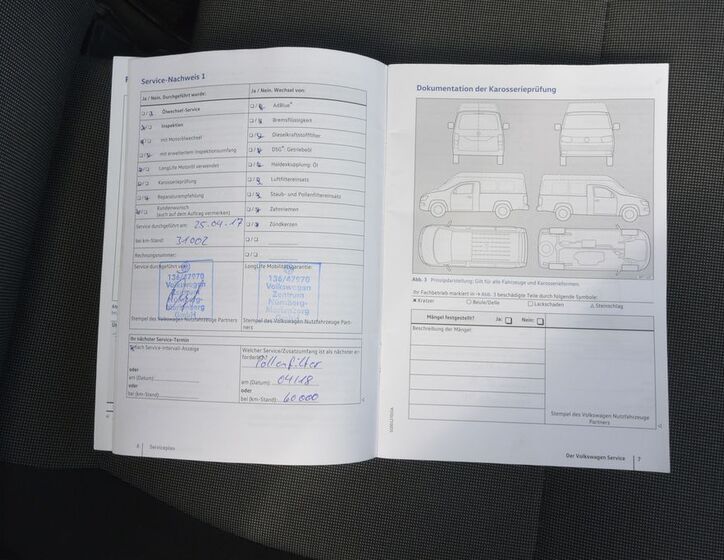 Service-Nachweis 1
Ja / Nein. Durchgeführt wurde:
Ölwechsel-Service
Inspektion
mit Motorölwechsel
mit erweitertem Inspektionsumfang
LongLife Motoröl verwendet
Karosserieprüfung
Reparaturempfehlung
Kundenwunsch
(auch auf dem Auftrag vermerken)
Service durchgeführt am: 25.04.17
bei km-Stand: 31002
Rechnungsnummer:
Service durchgeführt von:
136/47970
Volkswagen
Zentrum
Nürnberg-
Marienberg
GmbH
Stempel des Volkswagen Nutzfahrzeuge Partners
Ja / Nein. Wechsel von:
AdBlue®
Bremsflüssigkeit
Dieselkraftstofffilter
DSG®: Getriebeöl
Haldexkupplung: Öl
Luftfiltereinsatz
Staub- und Pollenfiltereinsatz
Zahnriemen
Zündkerzen
LongLife Mobilitätsgarantie:
136/47970
Volkswagen
Zentrum
Nürnberg-
Marienberg
GmbH
Stempel des Volkswagen Nutzfahrzeuge Part-
ners
Ihr nächster Service-Termin
nach Service-Intervall-Anzeige
oder
am (Datum):
oder
bei (km-Stand):
Welcher Service/Zusatzumfang ist als nächster er-
forderlich?
Pollenfilter
am (Datum): 04/18
oder
bei (km-Stand): 60000
6 Serviceplan
Dokumentation der Karosserieprüfung
Abb. 3 Prinzipdarstellung: Gilt für alle Fahrzeuge und Karosserieformen.
Ihr Fachbetrieb markiert in → Abb. 3 beschädigte Teile durch folgende Symbole:
× Kratzer ○ Beule/Delle □ Lackschaden △ Steinschlag
Mängel festgestellt? Ja: Nein:
Beschreibung der Mängel:
Stempel des Volkswagen Nutzfahrzeuge
Partners
Der Volkswagen Service 7